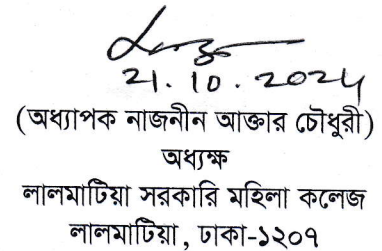 21.10.2024
(অধ্যাপক নাজনীন আক্তার চৌধুরী)
অধ্যক্ষ
লালমাটিয়া সরকারি মহিলা কলেজ
লালমাটিয়া, ঢাকা-১২০৭